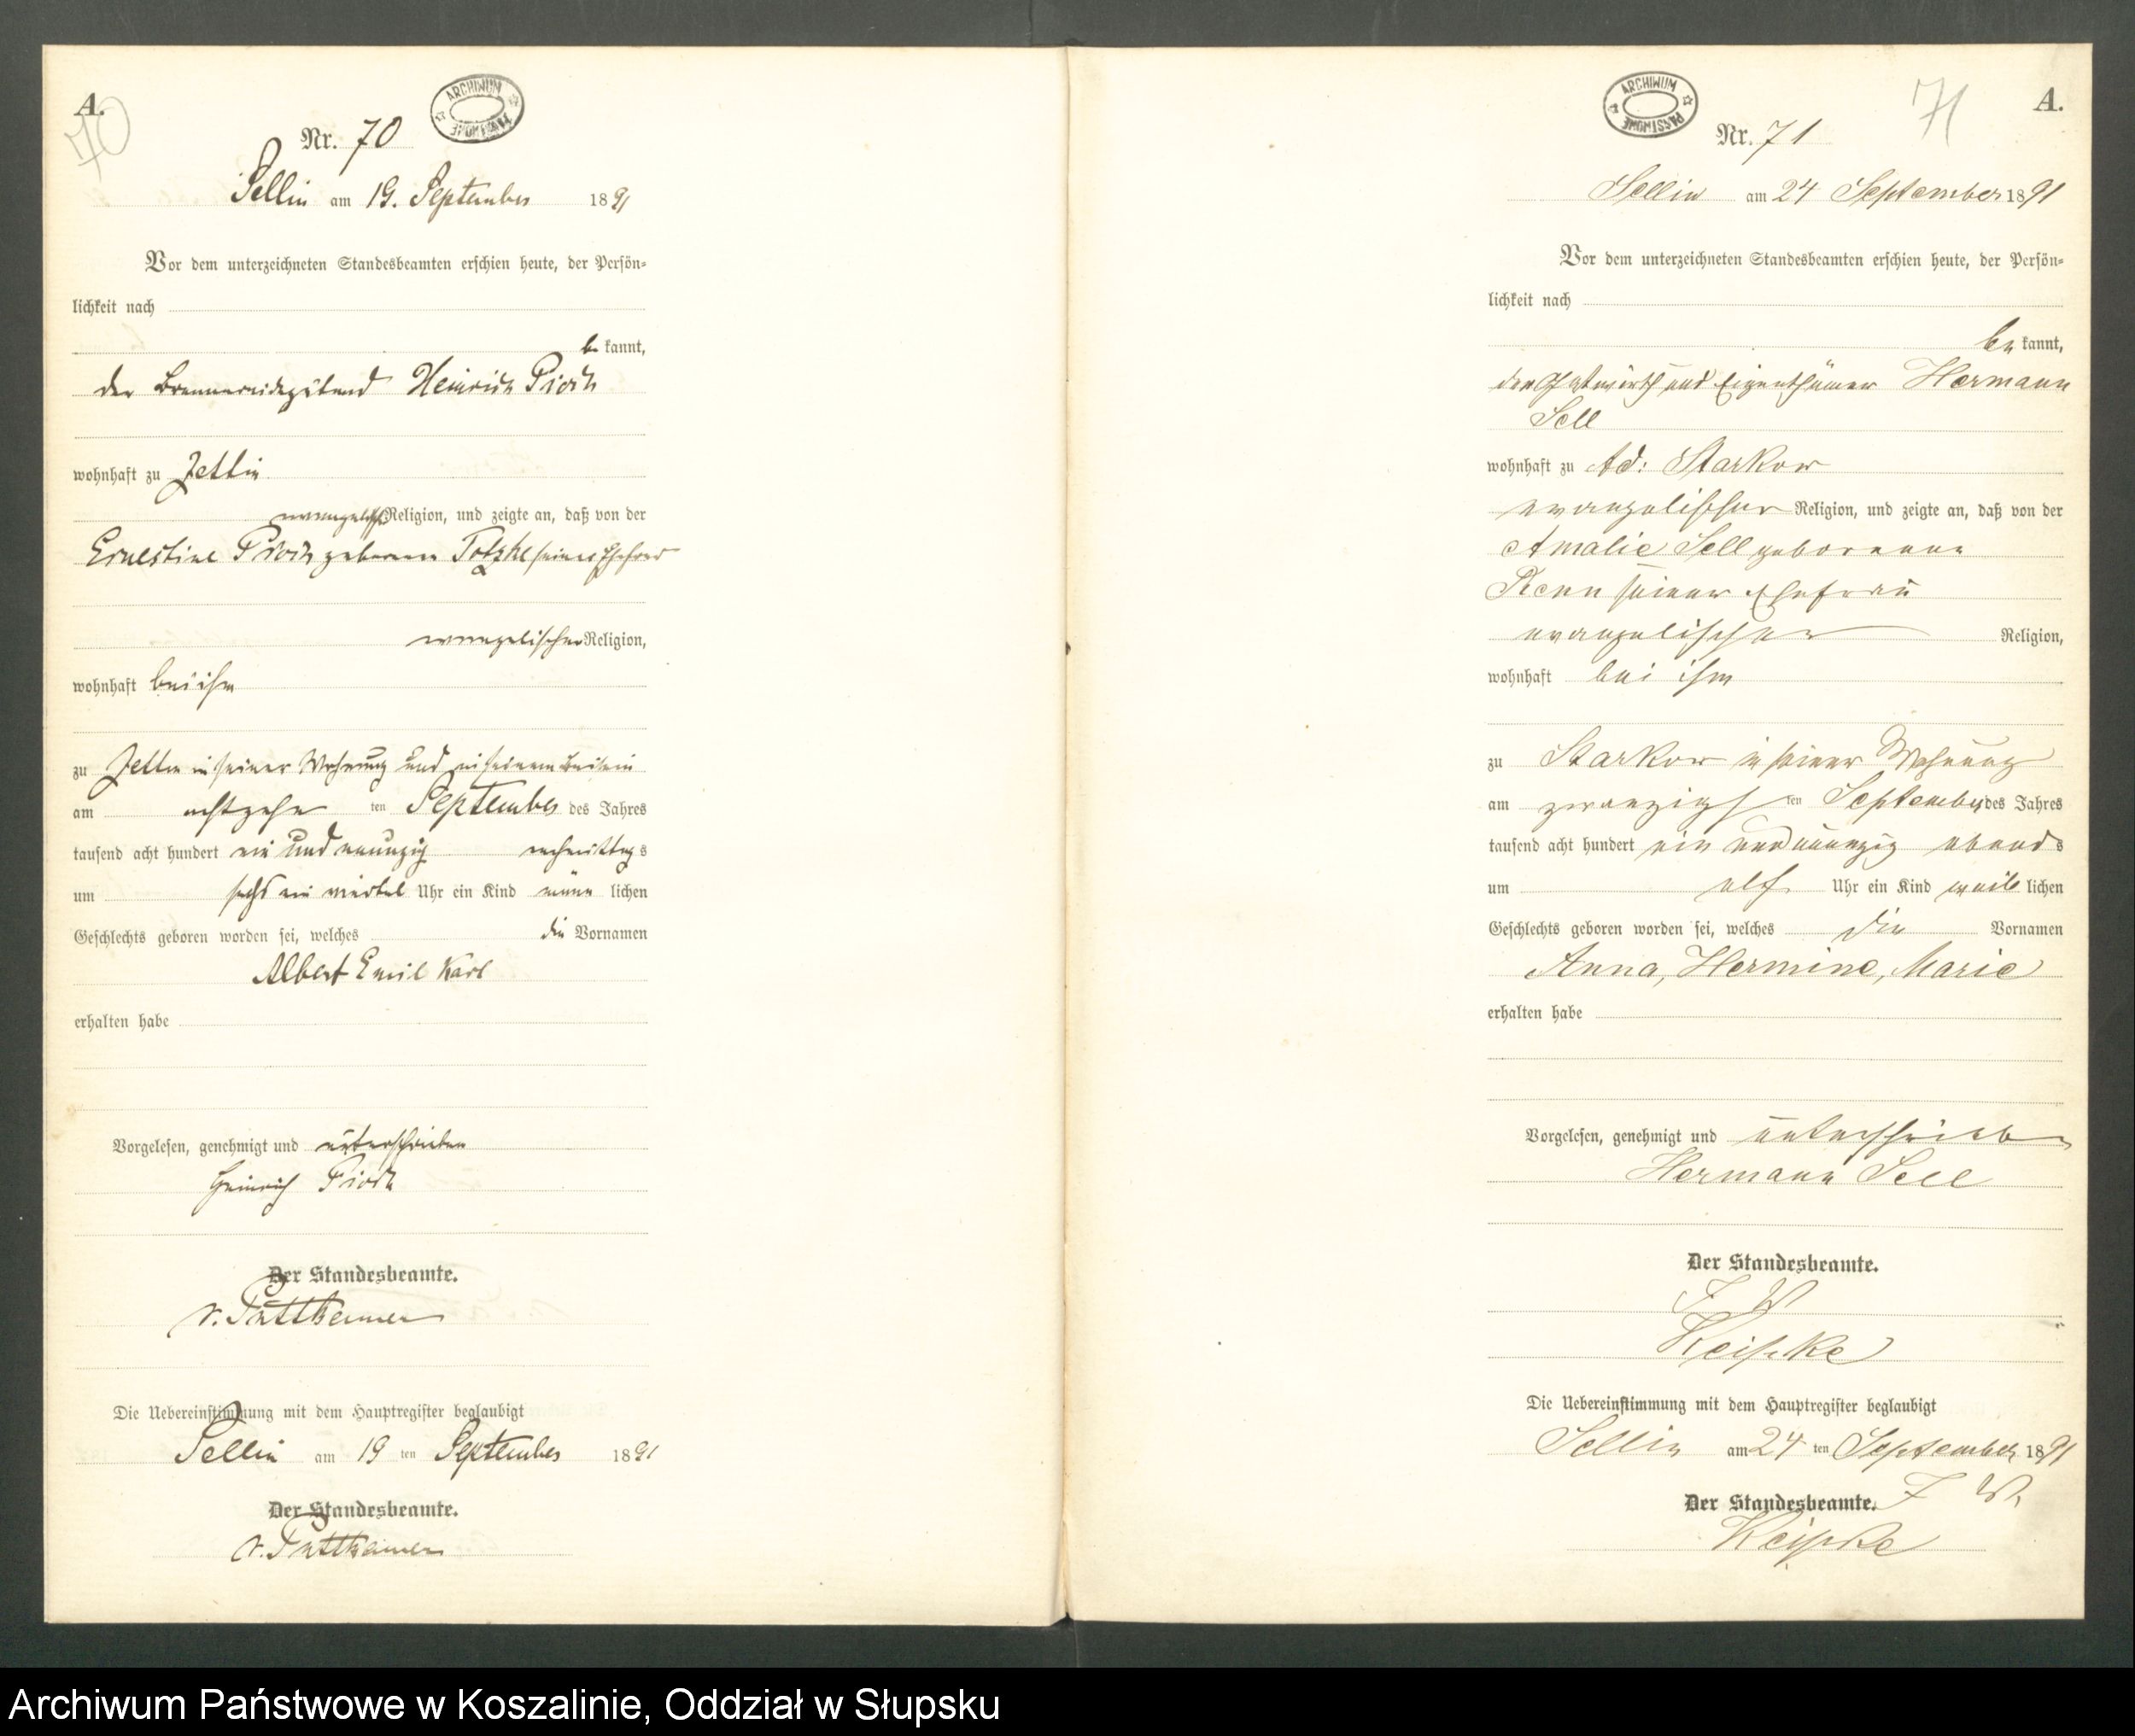 A.
70
ARCHIWUM PAŃSTWOWE
Nr. 70
Sellin am 19. September 1891
Vor dem unterzeichneten Standesbeamten erschien heute, der Persön-
lichkeit nach
be kannt,
der Heinrich Pioch
wohnhaft zu Jettin
evangelischer Religion, und zeigte an, daß von der
Ernestine Pioch geborenen seiner Ehefrau
evangelischer Religion,
wohnhaft bei ihm
zu Jettin in seiner Wohnung und in seinem Beisein
am achtzehn ten September des Jahres
tausend acht hundert ein und neunzig nachmittags
um sechs ein viertel Uhr ein Kind männ lichen
Geschlechts geboren worden sei, welches die Vornamen
Albert Emil Karl
erhalten habe
Vorgelesen, genehmigt und unterschrieben
Heinrich Pioch
Der Standesbeamte.
v. Puttkamer
Die Uebereinstimmung mit dem Hauptregister beglaubigt
Sellin am 19 ten September 1891
Der Standesbeamte.
v. Puttkamer
71
A.
ARCHIWUM PAŃSTWOWE
Nr. 71
Sellin am 24 September 1891
Vor dem unterzeichneten Standesbeamten erschien heute, der Persön-
lichkeit nach
be kannt,
der Gastwirth und Eigenthümer Hermann
Sell
wohnhaft zu Ad: Starkow
evangelischer Religion, und zeigte an, daß von der
Amalie Sell geborenen
seiner Ehefrau
evangelischer Religion,
wohnhaft bei ihm
zu Starkow in seiner Wohnung
am zwanzigs ten September des Jahres
tausend acht hundert ein und neunzig abends
um elf Uhr ein Kind weib lichen
Geschlechts geboren worden sei, welches die Vornamen
Anna, Hermine, Marie
erhalten habe
Vorgelesen, genehmigt und unterschrieben
Hermann Sell
Der Standesbeamte.
I W
Die Uebereinstimmung mit dem Hauptregister beglaubigt
Sellin am 24 ten September 1891
Der Standesbeamte. I W.
Archiwum Państwowe w Koszalinie, Oddział w Słupsku